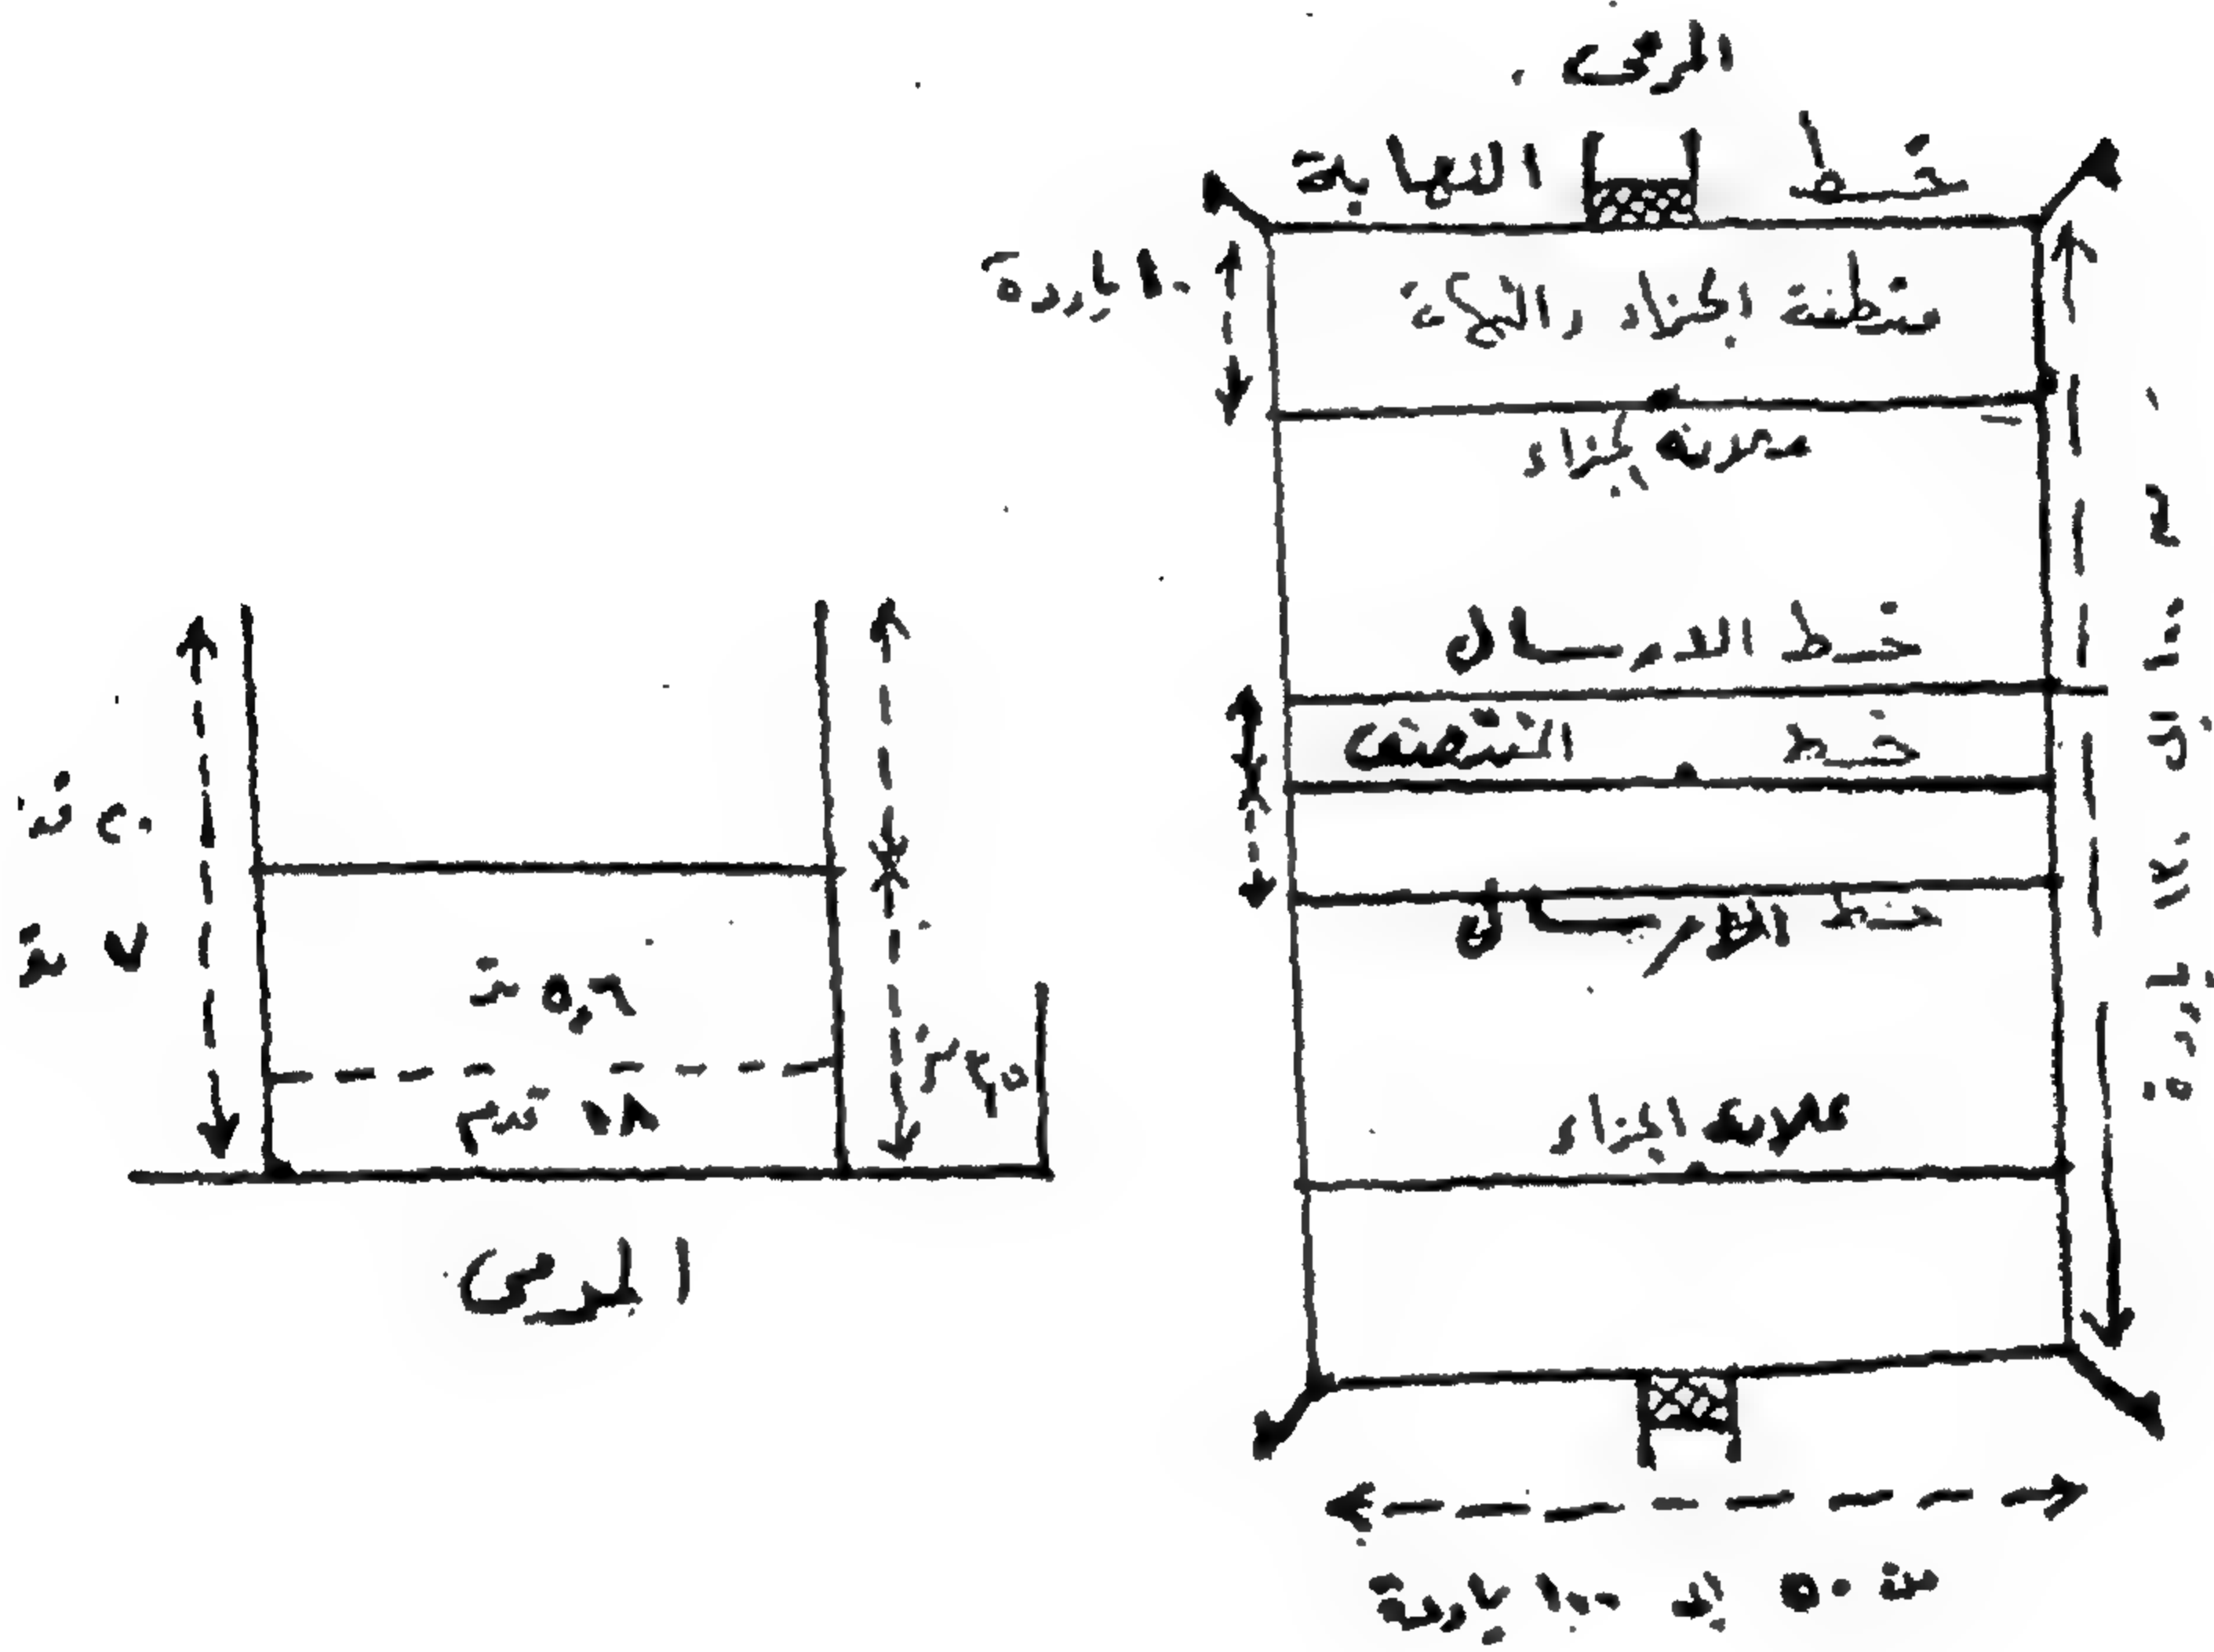 المرمى
خط النهاية
١٠ ياردة
منطقة الجزاء والتهديف
علامة الجزاء
خط الارسال
خط المنتصف
خط الارسال
علامة الجزاء
من ٥٠ إلى ١٠٠ ياردة
إلى ١٢٠ ياردة
٧ متر
٥,٦ متر
١٨ قدم
المرمى